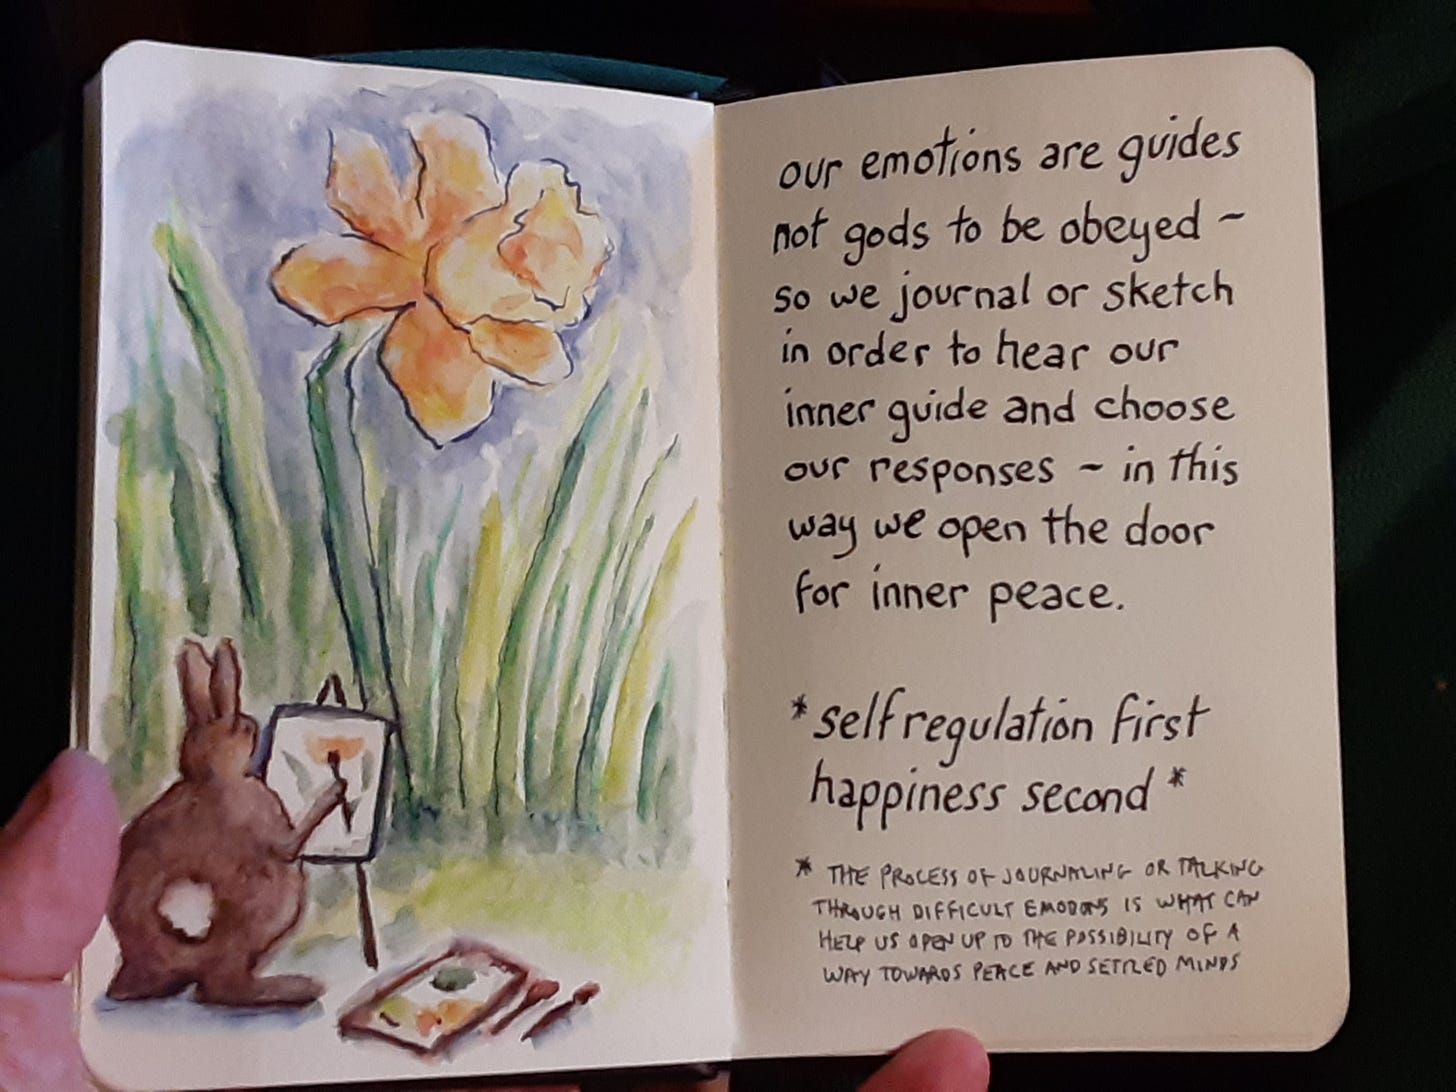 our emotions are guides
not gods to be obeyed ~
so we journal or sketch
in order to hear our
inner guide and choose
our responses ~ in this
way we open the door
for inner peace.
*self regulation first
happiness second*
* THE PROCESS OF JOURNALING OR TALKING
THROUGH DIFFICULT EMOTIONS IS WHAT CAN
HELP US OPEN UP TO THE POSSIBILITY OF A
WAY TOWARDS PEACE AND SETTLED MINDS